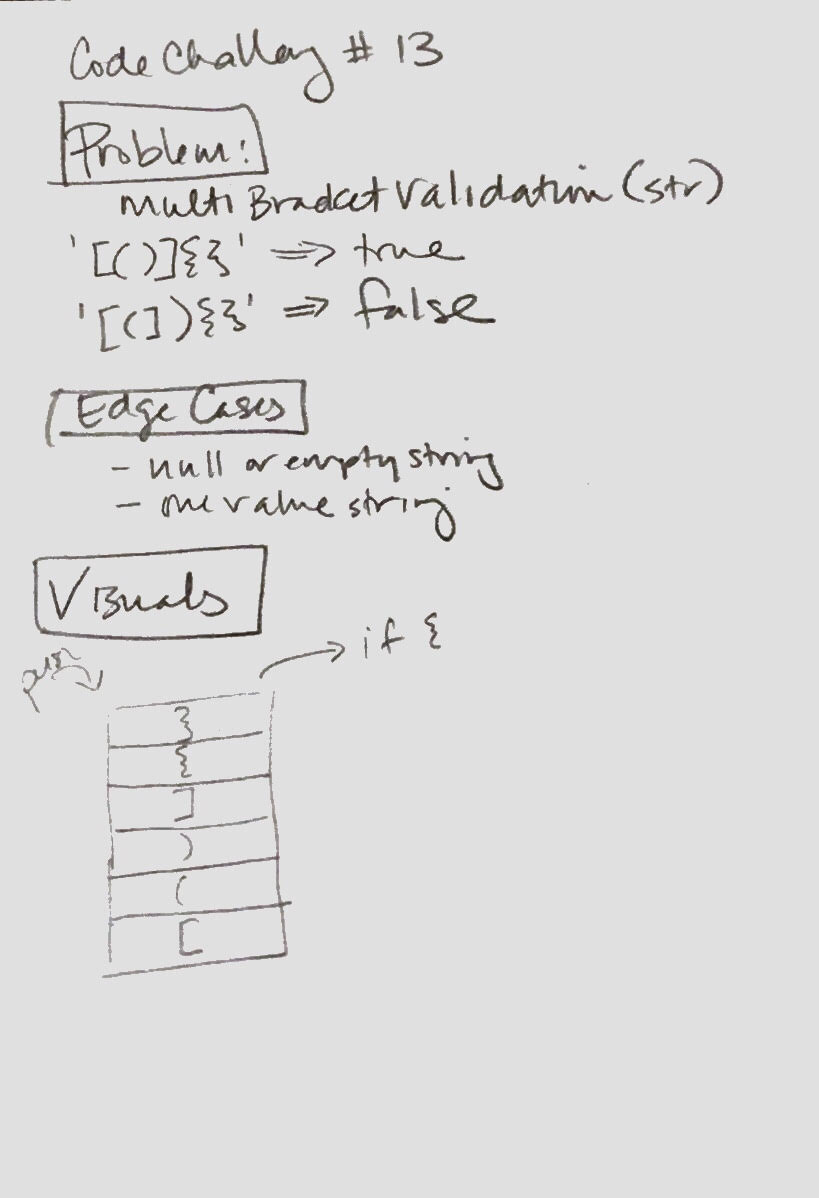 Code Challeng # 13
Problem:
Multi Bracket Validation (str)
'[()]{}' => true
'[(]){}' => false
Edge Cases
- null or empty string
- one value string
Visuals
if {
push
}
{
]
)
(
[